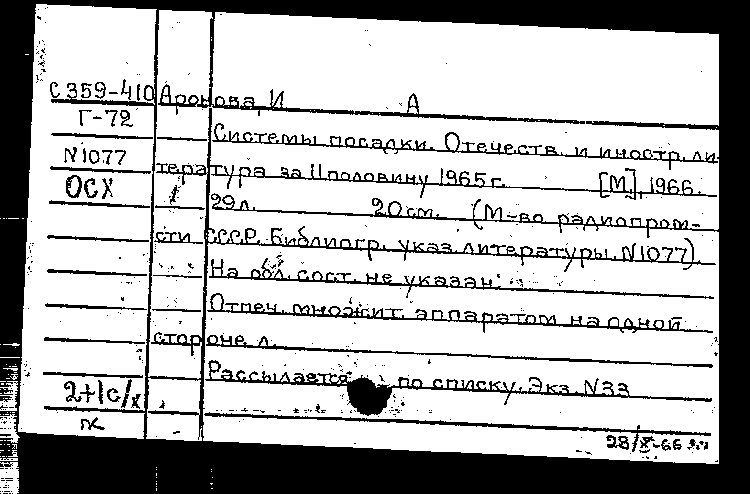 С359-410 Аронова, И А
Г-72
Системы посадки. Отечеств. и иностр. ли-
N1077
тература за II половину 1965г. [М.], 1966.
ОСХ
29л. 20см. (М-во радиопром-
сти СССР. Библиогр. указ. литературы. N1077).
На обл. сост. не указан.
Отпеч. множит. аппаратом на одной
стороне л.
Рассылается по списку. Экз. N33
2+1с/х
28/X-66